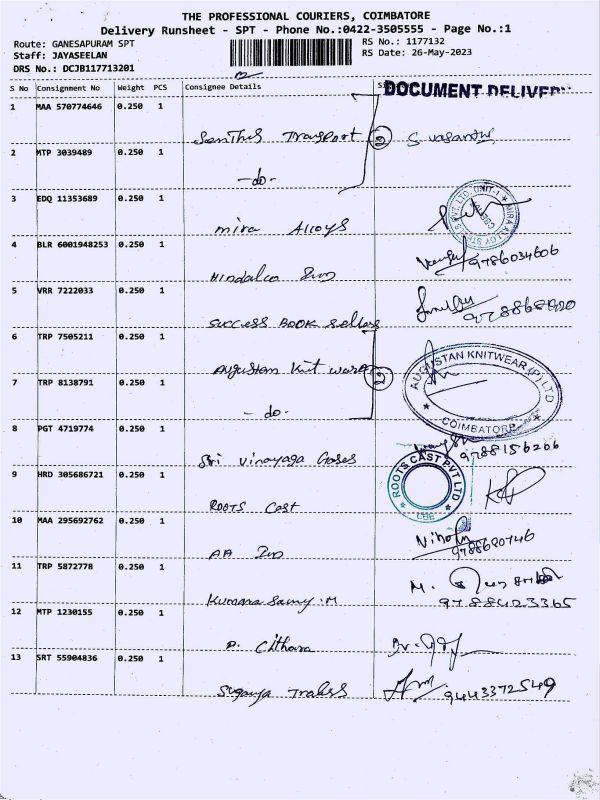 THE PROFESSIONAL COURIERS, COIMBATORE
Delivery Runsheet - SPT - Phone No.:0422-3505555 - Page No.:1
Route: GANESAPURAM SPT
RS No.: 1177132
Staff: JAYASEELAN
RS Date: 26-May-2023
DRS No.: DCJB117713201
S No Consignment No Weight PCS Consignee Details
DOCUMENT DELIVERY
1 MAA 570774646 0.250 1
Senthil Transport (2) S vasanthi
2 MTP 3039489 0.250 1
-do-
3 EDQ 11353689 0.250 1
mira Alloys
MIRA ALLOY STEELS PVT. LTD. UNIT-1
4 BLR 6001948253 0.250 1
Hindalco 9786034606
5 VRR 7222033 0.250 1
success Book sellers
6 TRP 7505211 0.250 1
Augustan knit ware (2)
AUGUSTAN KNITWEAR (P) LTD
COIMBATORE
7 TRP 8138791 0.250 1
-do-
8 PGT 4719774 0.250 1
Sri Vinayaga Gases 9788156266
9 HRD 305686721 0.250 1
Roots Cast
ROOTS CAST PVT LTD
CBE
10 MAA 295692762 0.250 1
AA 9788680746
11 TRP 5872778 0.250 1
Kumarasamy.M 9788423365
12 MTP 1230155 0.250 1
P. Cithara
13 SRT 55904836 0.250 1
Suganya Trades 9443372549